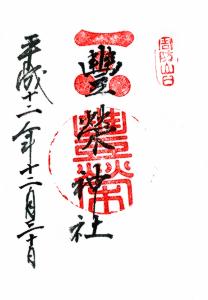 周防山口
豐榮神社
豐榮
平成十二年十二月三十日